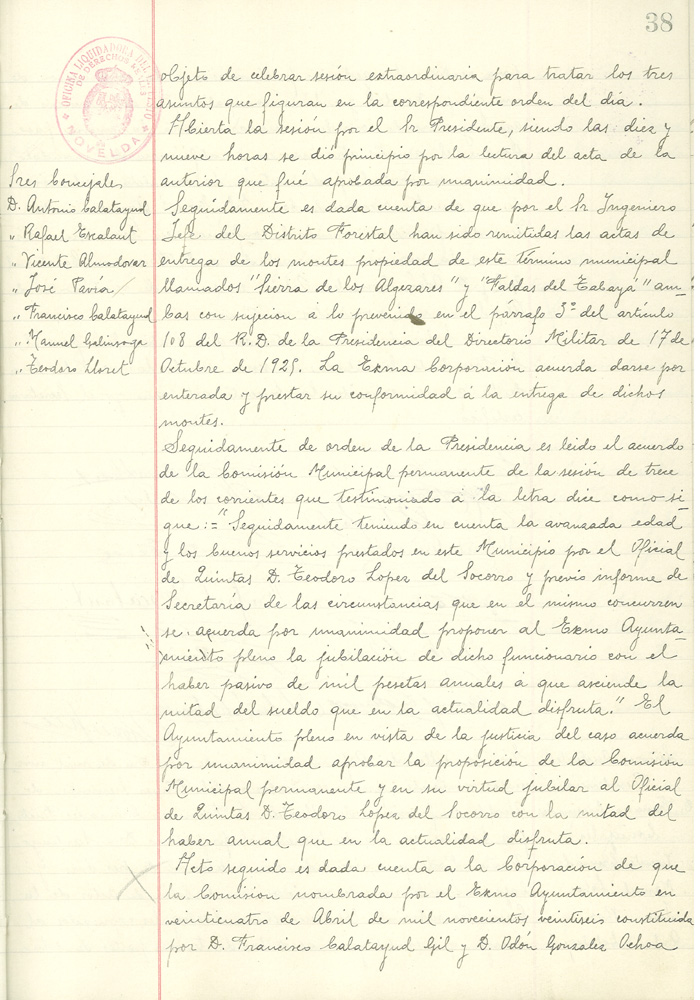 38
OFICINA LIQUIDADORA DEL
DE DERECHOS
NOVELDA
objeto de celebrar sesión extraordinaria para tratar los tres
asuntos que figuran en la correspondiente orden del día.
Abierta la sesión por el Sr Presidente, siendo las diez y
nueve horas se dió principio por la lectura del acta de la
anterior que fué aprobada por unanimidad.
Sres Concejales
D. Antonio Calatayud
" Rafael Escalant
" Vicente Almodovar
" José Pavía
" Francisco Calatayud
" Manuel Galinsoga
" Teodoro Lloret
Seguidamente es dada cuenta de que por el Sr Ingeniero
Jefe del Distrito Forestal han sido remitidas las actas de
entrega de los montes propiedad de este término municipal
llamados "Sierra de los Algezares" y "Faldas del Tabayá" am-
bas con sujecion á lo prevenido en el párrafo 3º del artículo
108 del R.D. de la Presidencia del Directorio Militar de 17 de
Octubre de 1925. La Exma Corporación acuerda darse por
enterada y prestar su conformidad á la entrega de dichos
montes.
Seguidamente de orden de la Presidencia es leido el acuerdo
de la Comisión Municipal permanente de la sesión de trece
de los corrientes que testimoniado á la letra dice como si-
gue:= "Seguidamente teniendo en cuenta la avanzada edad
y los buenos servicios prestados en este Municipio por el Oficial
de Quintas D. Teodoro Lopez del Socorro y previo informe de
Secretaría de las circunstancias que en el mismo concurren
se acuerda por unanimidad proponer al Exmo Ayunta-
miento pleno la jubilación de dicho funcionario con el
haber pasivo de mil pesetas anuales á que asciende la
mitad del sueldo que en la actualidad disfruta." El
Ayuntamiento pleno en vista de la justicia del caso acuerda
por unanimidad aprobar la proposición de la Comisión
Municipal permanente y en su virtud jubilar al Oficial
de Quintas D. Teodoro López del Socorro con la mitad del
haber anual que en la actualidad disfruta.
Acto seguido es dada cuenta a la Corporación de que
la Comision nombrada por el Exmo Ayuntamiento en
veinticuatro de Abril de mil novecientos veintiseis constituida
por D. Francisco Calatayud Gil y D. Odón Gonzalez Ochoa